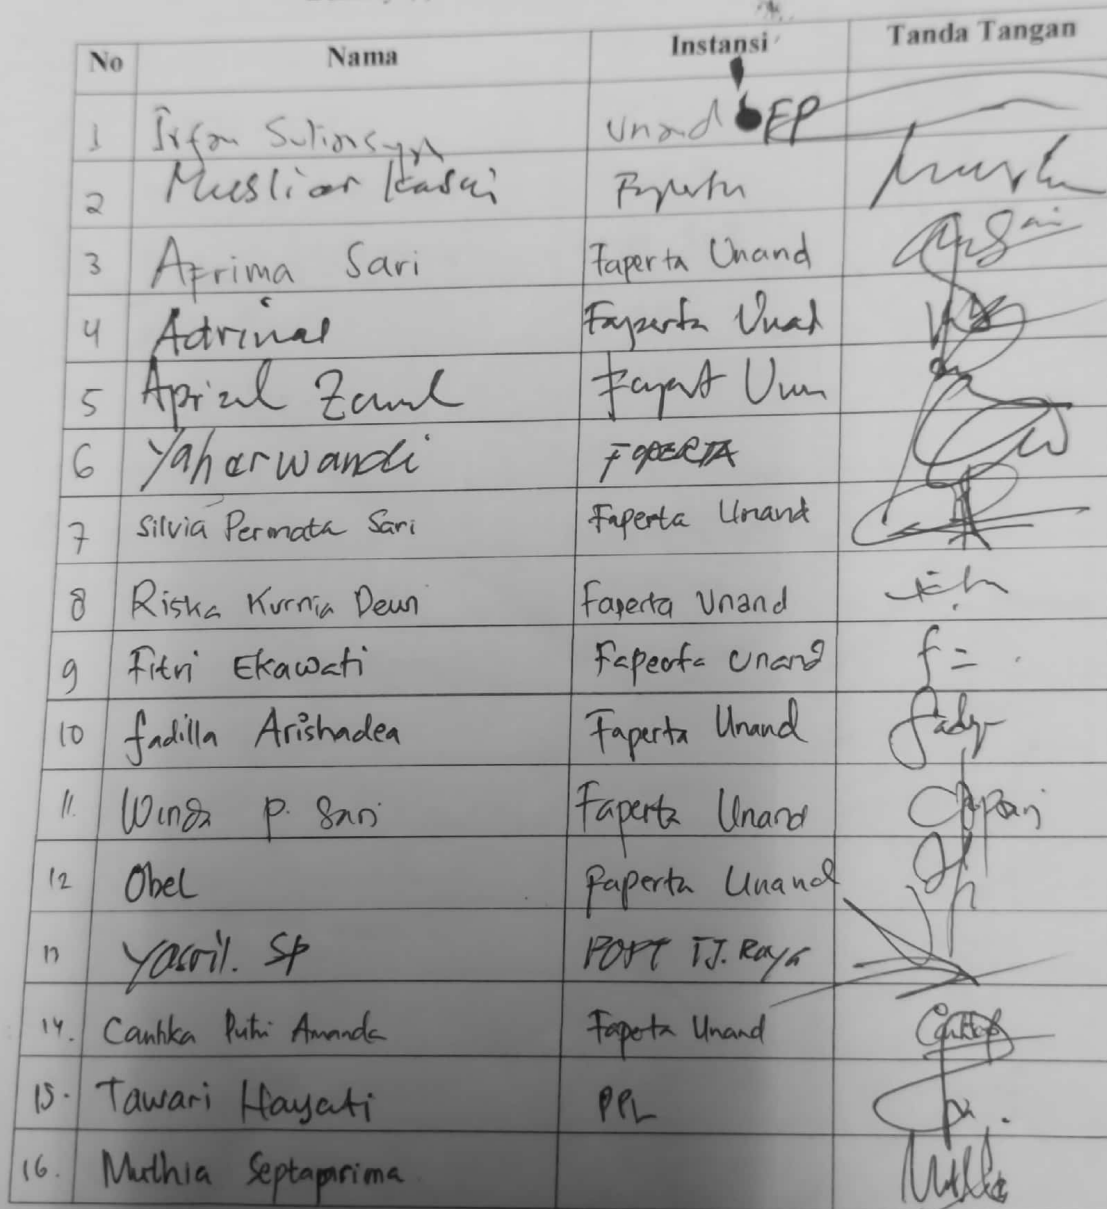 No Nama Instansi Tanda Tangan
1 Irfan Suliansyah Unand FP
2 Musliar Kasai Faperta
3 Afrima Sari Faperta Unand
4 Adrinal Faperta Unad
5 Aprizal Zainal Fapert Unan
6 Yaherwandi FAPERTA
7 Silvia Permata Sari Faperta Unand
8 Riska Kurnia Dewi Faperta Unand
9 Fitri Ekawati Faperta Unand f =
10 fadilla Arishadea Faperta Unand
11. Winda P. Sari Faperta Unand
12 Obel Faperta Unand
13 Yasril. SP POPT TJ. Raya
14. Cantika Putri Amanda Faperta Unand
15. Tawari Hayati PPL
16. Muthia Septaprima